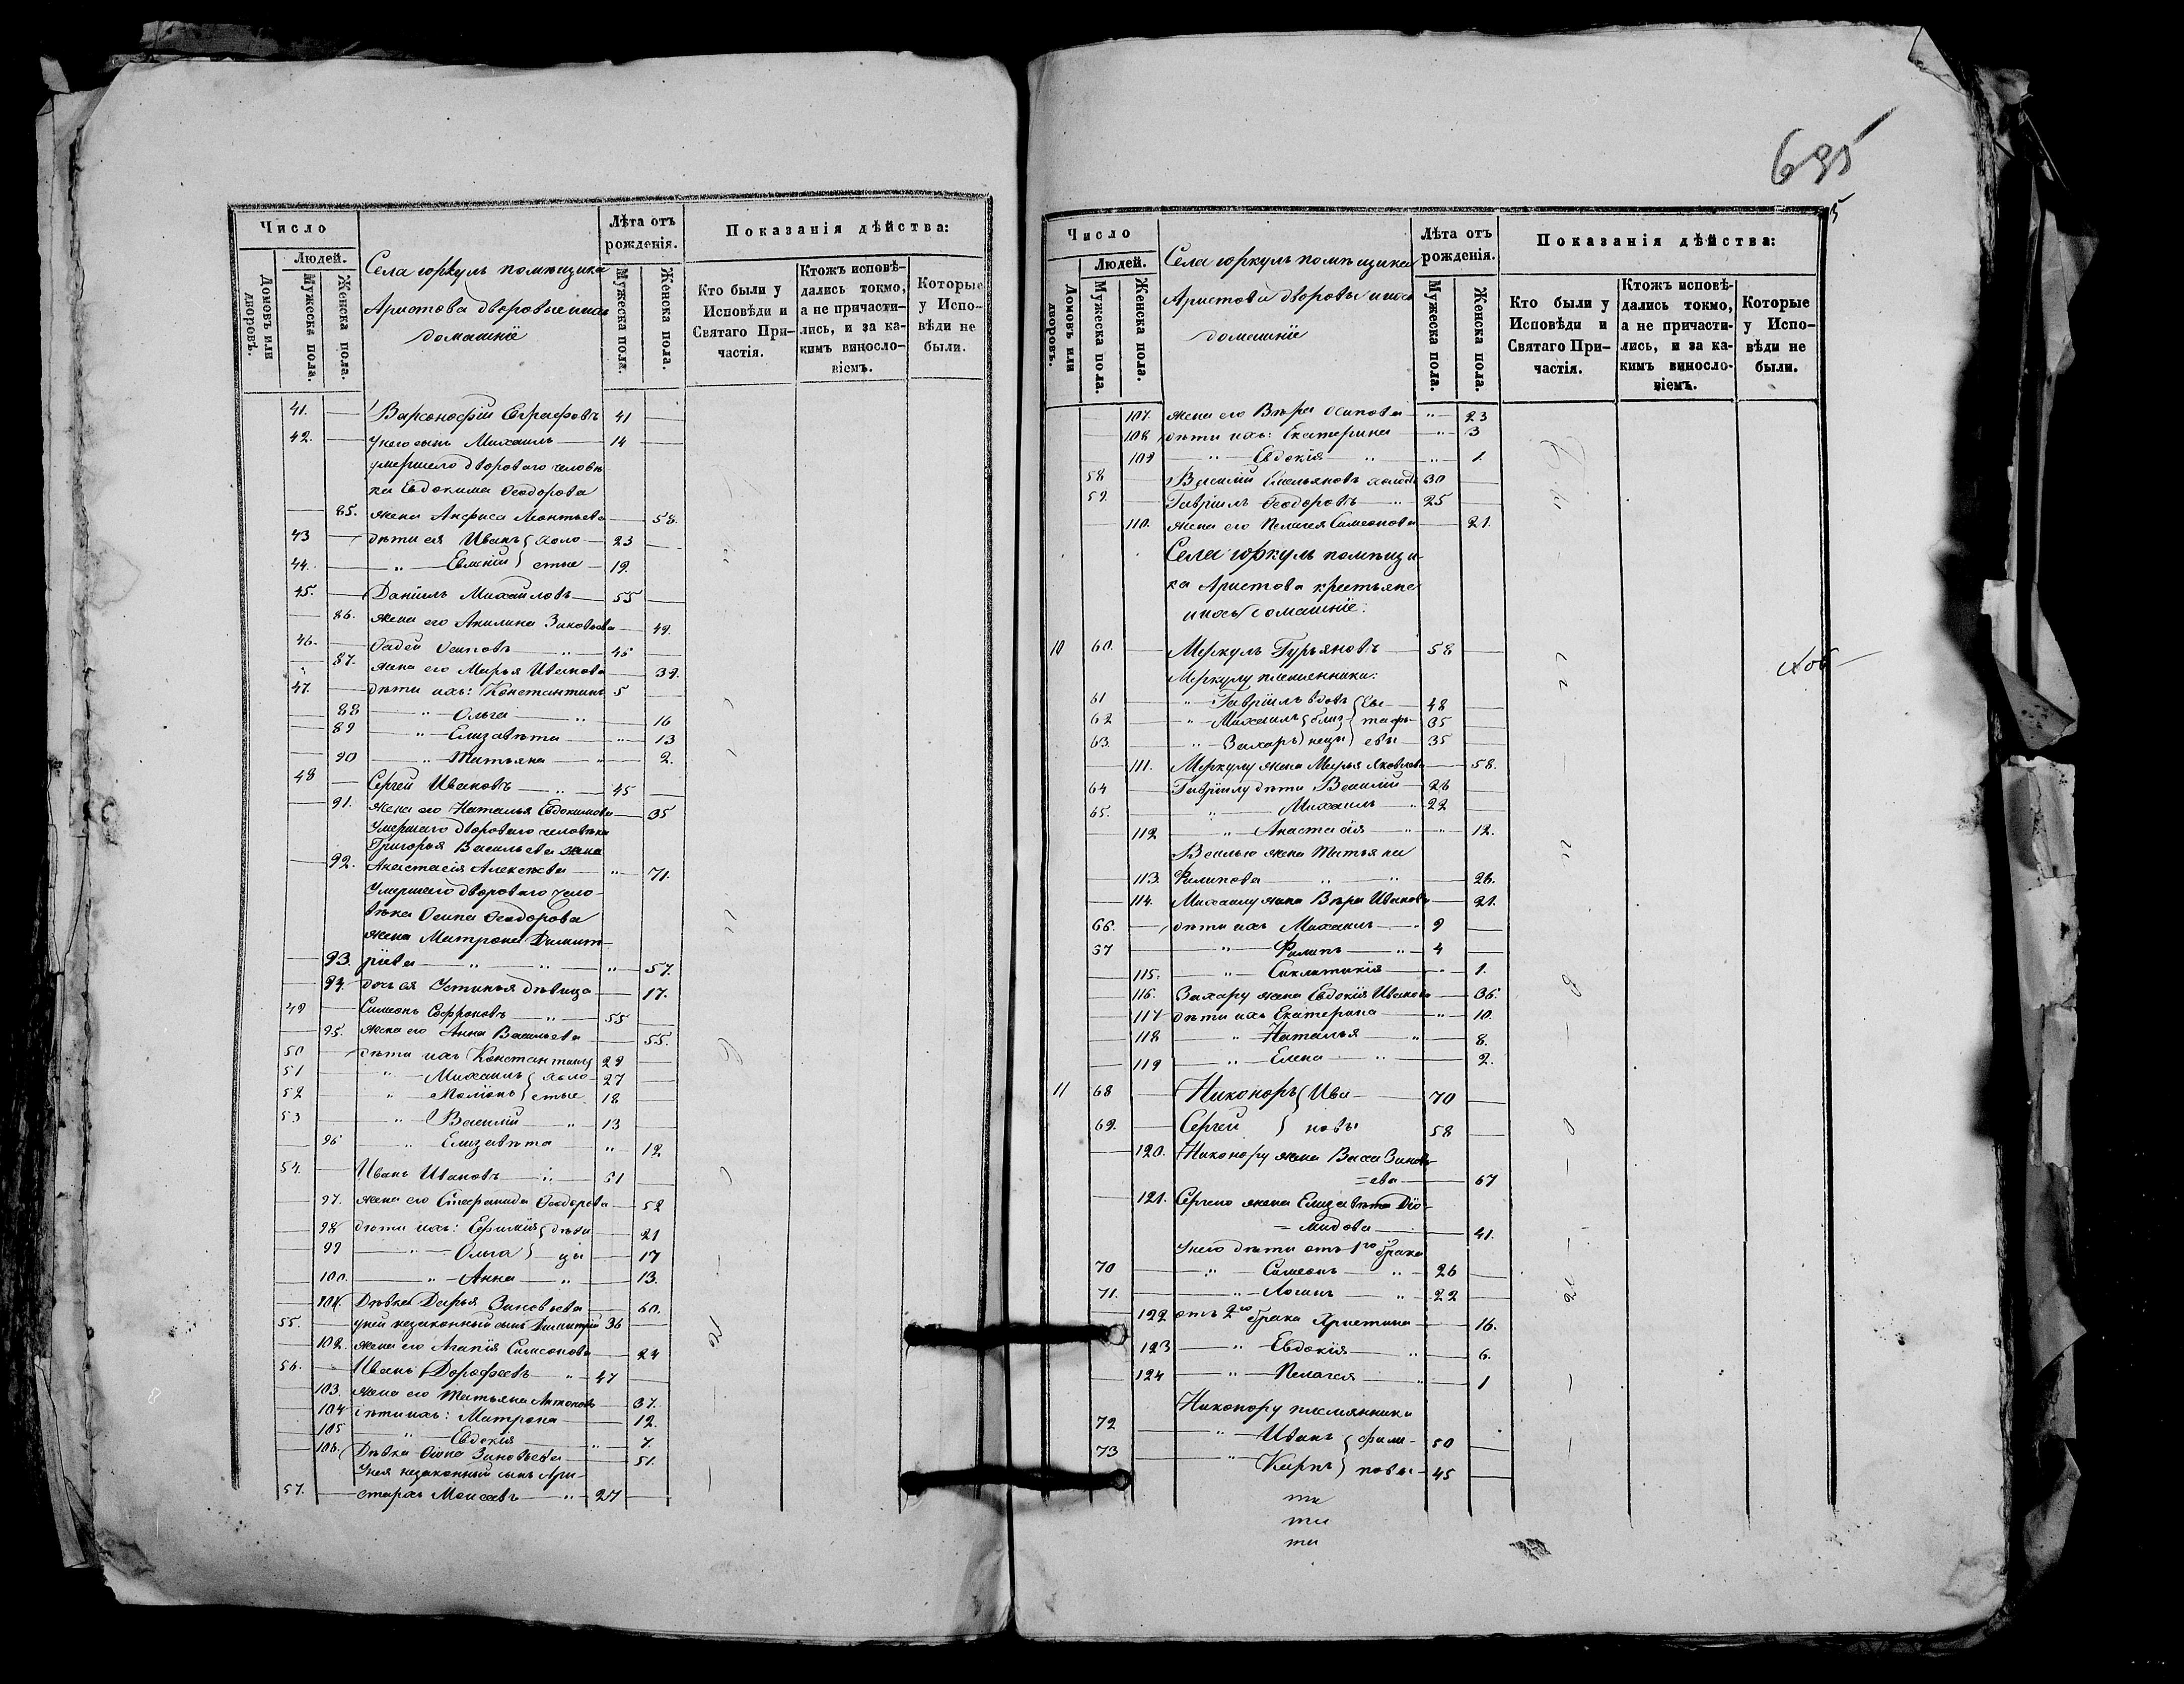 Число
Людей.
Домовъ или дворовъ.
Мужеска пола.
Женска пола.
Села Юркуль помѣщика
Аристова дворовые и ихъ
домашніе
Лѣта отъ рожденія.
Мужеска пола.
Женска пола.
Показанія дѣйства:
Кто были у Исповѣди и Святаго При-частія.
Ктожъ исповѣ-дались токмо, а не причасти-лись, и за ка-кимъ винословіемъ.
Которые у Испо-вѣди не были.
41. Варсонофій Евграфовъ 41
42. У него сынъ Михаилъ 14
умершего двороваго человѣ
ка Евдокима Ѳеодорова
85. жена Анфиса Леонтьева 58.
43 дѣти ея Иванъ холо 23
44. " Евмпій стые 19.
45. Даніилъ Михайловъ 55
86. жена его Акилина Зиновьева 49.
46. Фадей Осиповъ " 45
87. жена его Марья Иванова 39.
47. дѣти ихъ: Константинъ 5
88 " Ольга " 16
89 " Елизавѣта " 13
90 " Татьяна " 2.
48 Сергей Ивановъ " 45
91. жена его Наталья Евдокимова 35
Умершаго двороваго человѣка
Григорья Васильева жена
92. Анастасія Алексѣева " 71.
Умершаго двороваго чело-
вѣка Осипа Ѳеодорова
жена Матрона Димит-
93. ріева " " " 57.
94. дочь ея Устинья дѣвица 17.
49 Симеонъ Софроновъ " 55
95. жена его Анна Васильева 55.
50 дѣти ихъ Константинъ 29
51 " Михаилъ холо 27
52 " стые 18
53 " Василій " 13
96 " Елизавѣта " 12
54. Иванъ Ивановъ " 51
97. жена его Степанида Ѳеодорова 52
98 дѣти ихъ: Ефимія дѣви 21
99 " Ольга цы 17
100. " Анна " 13.
101. Дѣвка Дарья Зиновьева 60.
55. у ней незаконный сынъ Димитрій 36
102. жена его Агапія Симеонова 24
56. Иванъ Дорофеевъ " 47
103. жена его Татьяна Антонова 37.
104 дѣти ихъ: Матрона 12.
105 " Евдокія " 7.
106. Дѣвка Зиновьева 51.
У нея незаконный сынъ Ари-
57. стархъ Моисеевъ " 27
695
5
Число
Людей.
Домовъ или дворовъ.
Мужеска пола.
Женска пола.
Села Юркуль помѣщика
Аристова дворовые и ихъ
домашніе
Лѣта отъ рожденія.
Мужеска пола.
Женска пола.
Показанія дѣйства:
Кто были у Исповѣди и Святаго При-частія.
Ктожъ исповѣ-дались токмо, а не причасти-лись, и за ка-кимъ винословіемъ.
Которые у Испо-вѣди не были.
107. жена его Вѣра Осипова " 23
108 дѣти ихъ: Екатерина " 3
109 " Евдокія " " 1.
58 Василій Емельяновъ холост 30
59. Гавріилъ Ѳеодоровъ " 25
110. жена его Пелагея Симеонова 21.
Села Юркуль помѣщи-
ка Аристова крестьяне
и ихъ домашніе:
10 60. Меркулъ Гурьяновъ 58
Меркулу племянники:
61 " Гавріилъ вдовъ Ев- 48
62 " Михаилъ близ- тафь- 35
63. " Захаръ нецы евы 35
111. Меркулу жена Марья Яковлева 58.
64 Гавріилу дѣти Василій 26
65. " Михаилъ " 22
112 " Анастасія " " 12.
Василью жена Татьяна
113. Филипова " " 26.
114. Михаилу жена Вѣра Иванова 21.
66. дѣти ихъ Михаилъ " 9
67 " Филипъ " 4
115. " Синклитикія " 1.
116. Захару жена Евдокія Иванова 36.
117 дѣти ихъ Екатерина " 10.
118 " Наталья " 8.
119 " Елена " 2.
11 68 Никоноръ Ива- 70
69. Сергей новы 58
120. Никонору жена Васса Зиновь-
=ева 67
121. Сергею жена Елизавѣта Діо-
=мидова 41.
У него дѣти отъ 1го брака
70 " Симеонъ " 26
71. " Логинъ " 22
122 отъ 2го брака Христина 16.
123 " Евдокія " 6.
124 " Пелагея " 1
Никонору племянники
72 " Иванъ фили- 50
73 " Карпъ повы 45